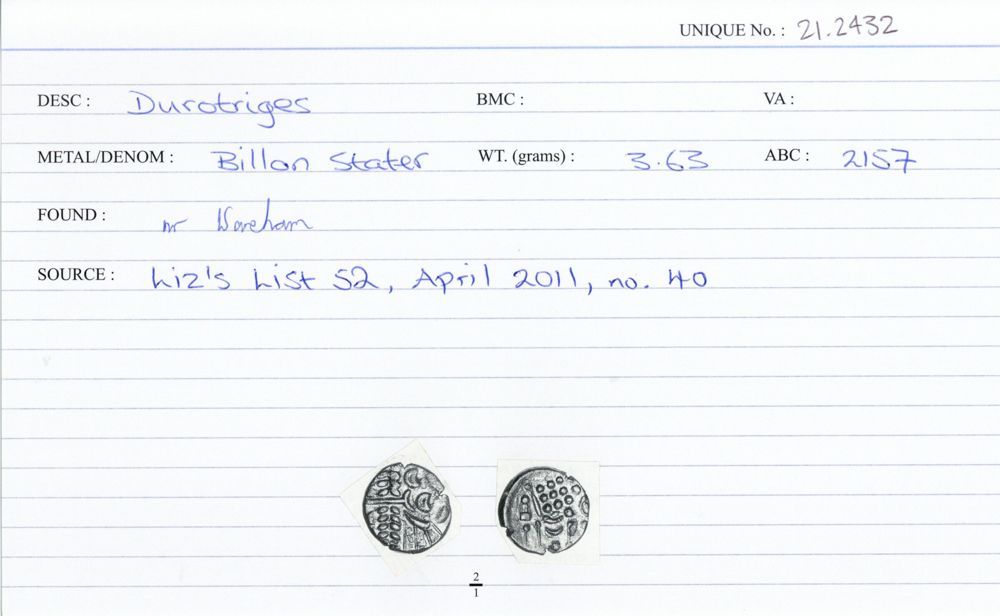 UNIQUE No. : 21.2432
DESC : Durotriges BMC : VA :
METAL/DENOM : Billon Stater WT. (grams) : 3.63 ABC : 2157
FOUND : nr Wareham
SOURCE : Liz's List 52, April 2011, no. 40
2
1